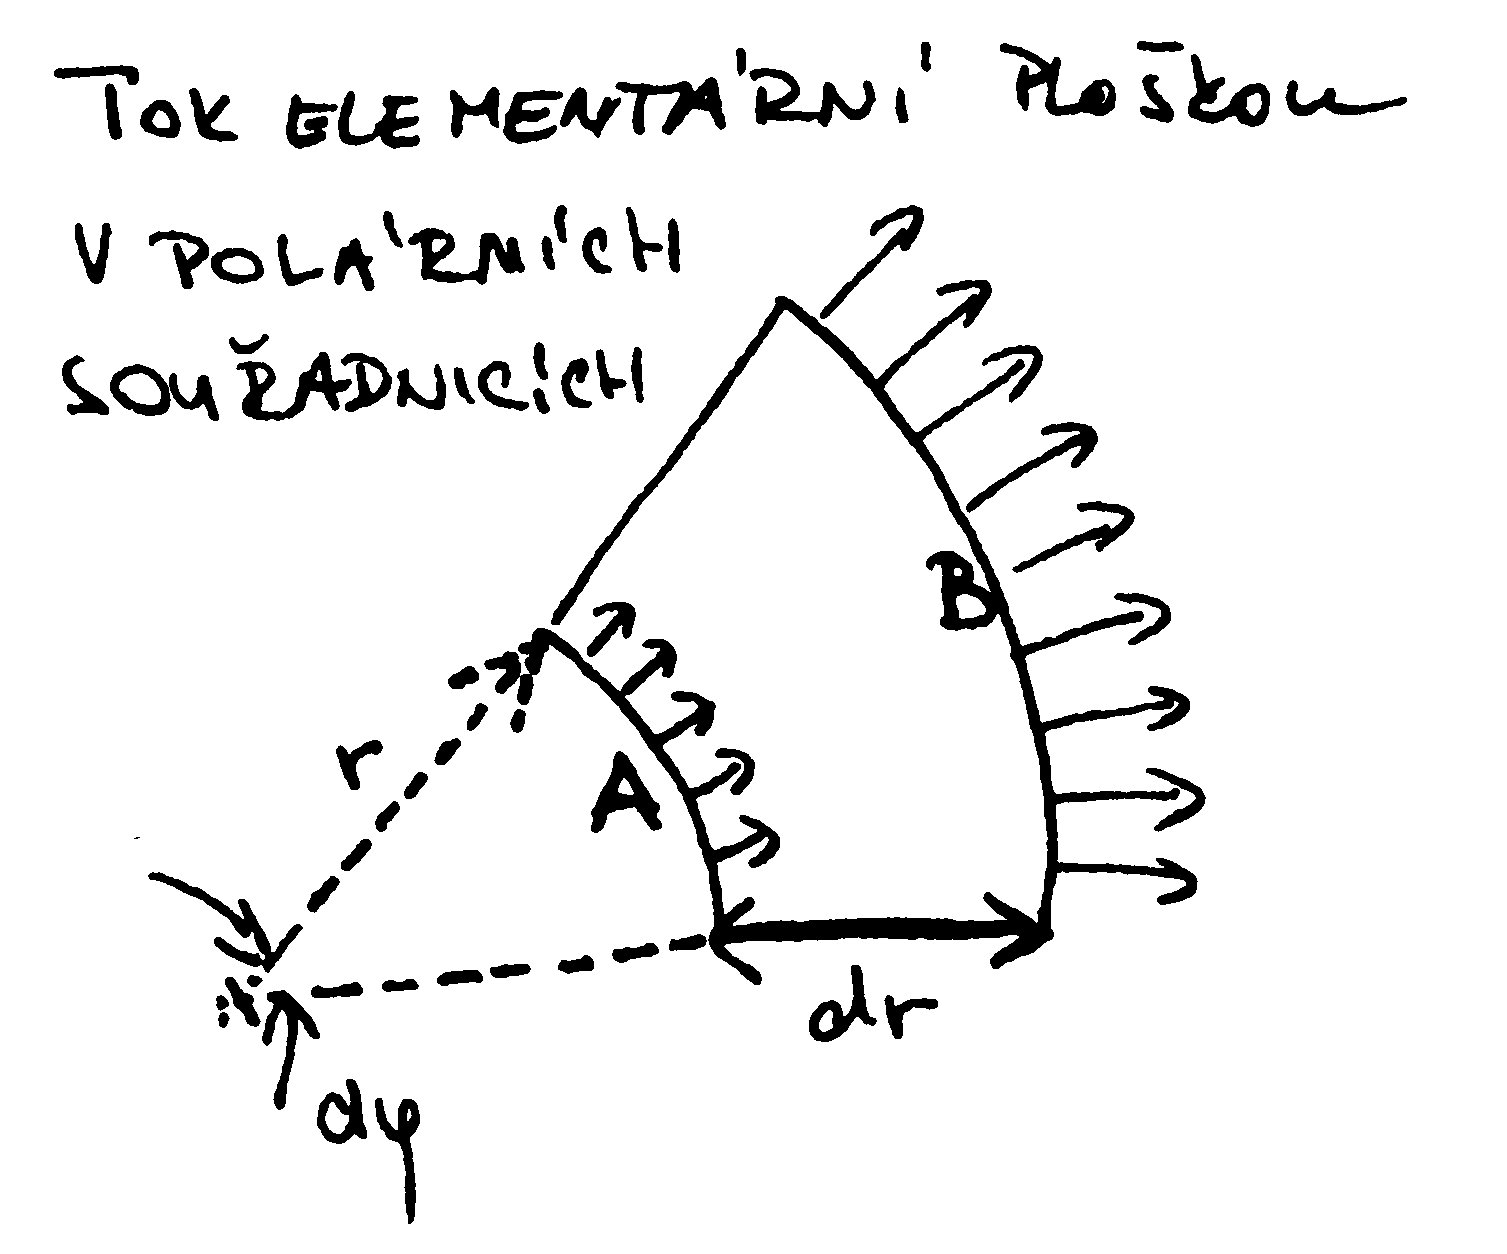 TOK ELEMENTÁRNÍ PLOŠKOU
V POLÁRNÍCH
SOUŘADNICÍCH
B
r
A
dr
dφ